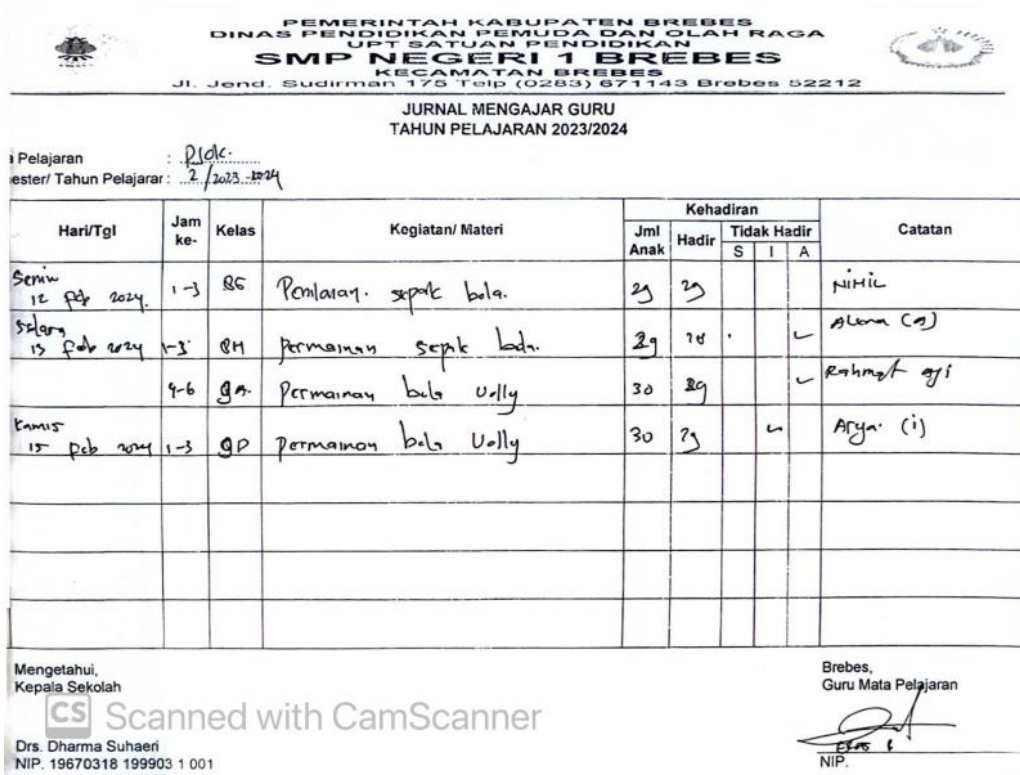 PEMERINTAH KABUPATEN BREBES
DINAS PENDIDIKAN PEMUDA DAN OLAH RAGA
UPT SATUAN PENDIDIKAN
SMP NEGERI 1 BREBES
KECAMATAN BREBES
Jl. Jend. Sudirman 175 Telp (0283) 671143 Brebes 52212
JURNAL MENGAJAR GURU
TAHUN PELAJARAN 2023/2024
Pelajaran : PJOK.
ester/ Tahun Pelajarar : 2 / 2023 - 2024
Hari/Tgl Jam ke- Kelas Kegiatan/ Materi Kehadiran Catatan
Jml Anak Hadir Tidak Hadir
S I A
Senin
12 Feb 2024. 1-3 8G sepak bola. 29 29 NIHIL
Selasa
13 Feb 2024 1-3 8H Permainan sepak bola. 29 28 Alena (a)
4-6 9A. Permainan bola Volly 30 29 Rahmat aji
Kamis
15 Feb 2024 1-3 9D Permainan bola Volly 30 29 Arya. (i)
Mengetahui,
Kepala Sekolah
Brebes,
Guru Mata Pelajaran
CS Scanned with CamScanner
Drs. Dharma Suhaeri
NIP. 19670318 199903 1 001
NIP.